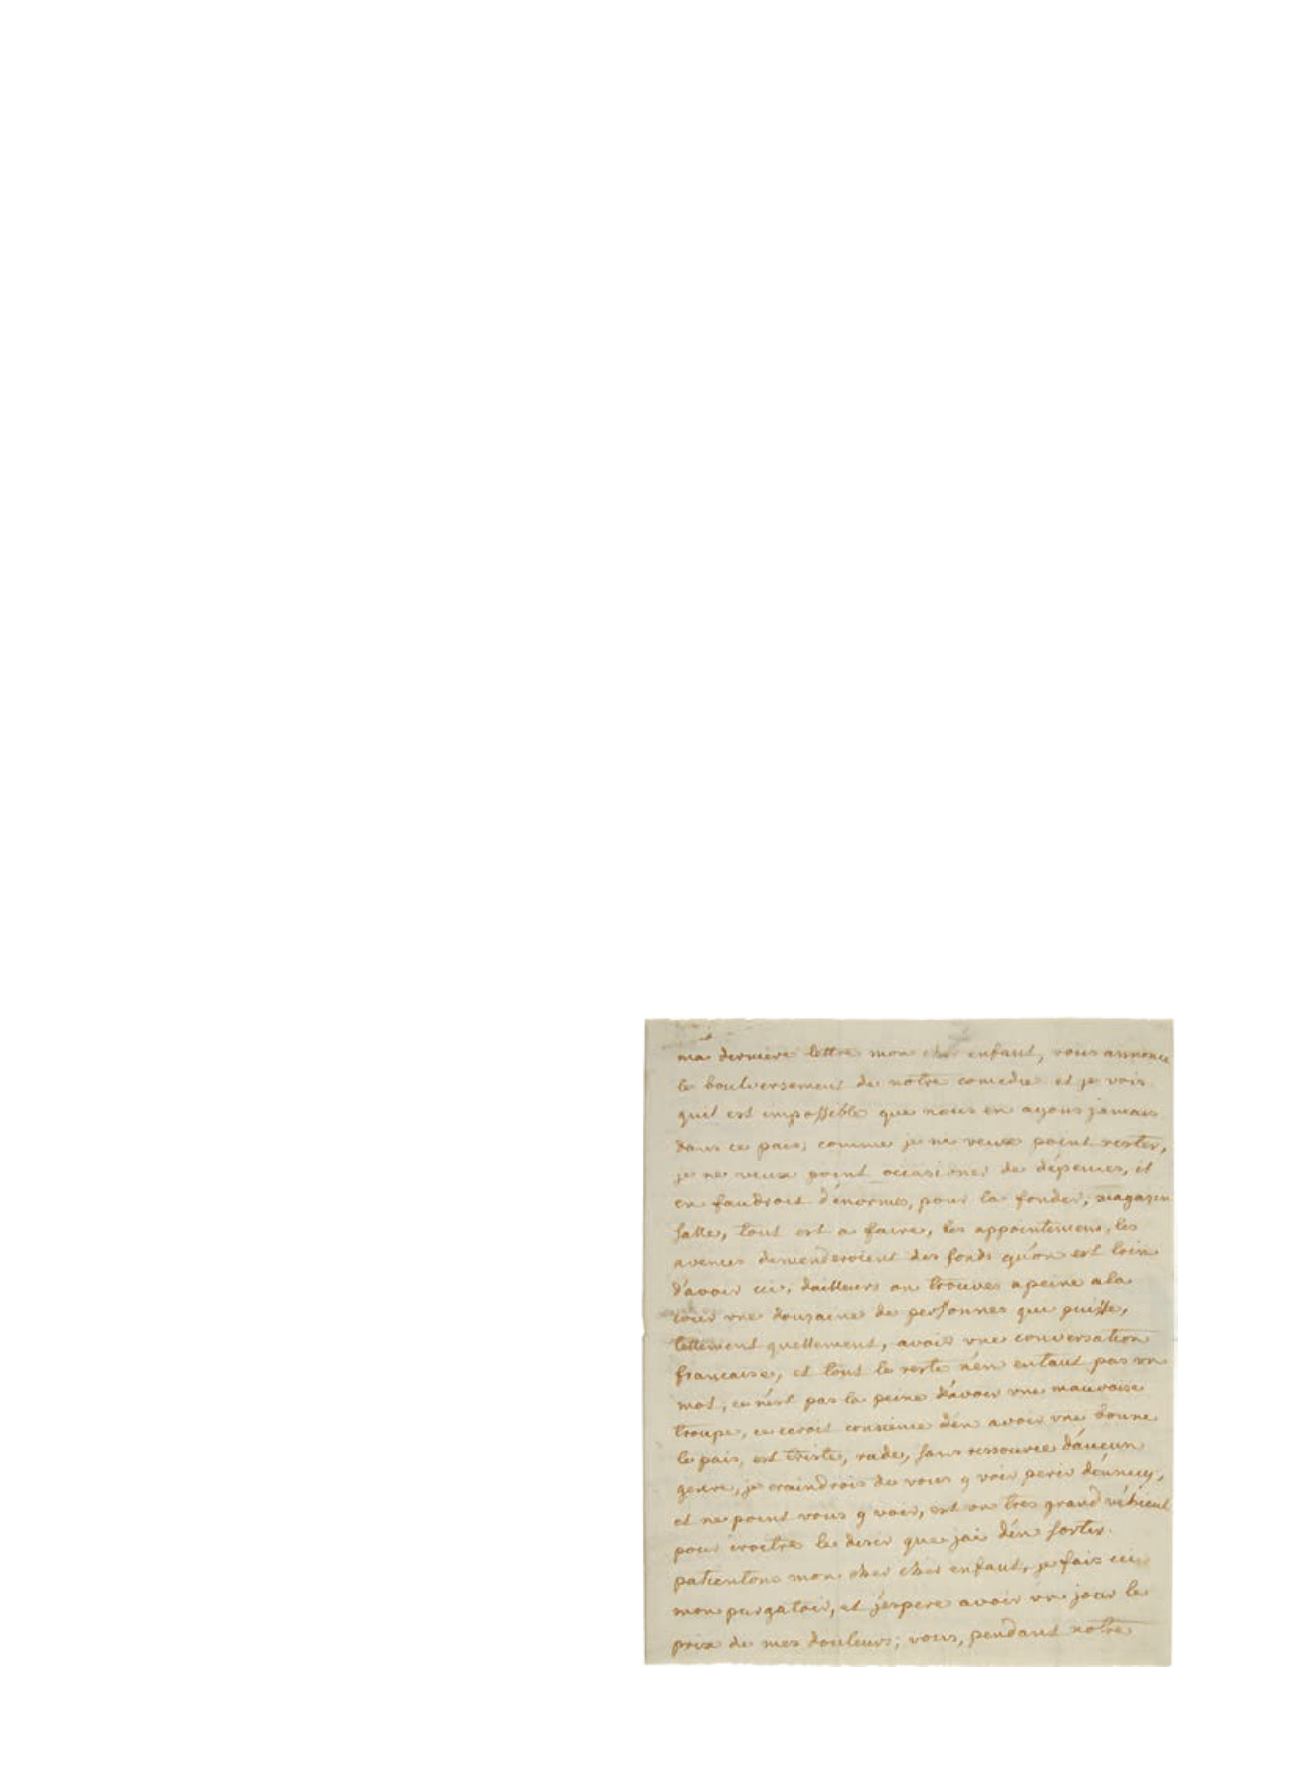 ma derniere lettre mon cher enfant, vous annonce
le boulversement de notre comedie et je vois
quil est impossible que nous en ayons jamais
dans ce pais; comme je ni veux point rester,
je ne veux point occasioner de dépences, il
en faudroit d'énormes, pour la fonder, magazin
salle, tout est a faire, les appointemens, les
avences demenderoient des fonds qu'on est loin
d'avoir ici, dailleurs on trouves apeine ala
cour vne douzaine de personnes qui puisse,
tellement quellement, avoir vne conversation
francaise, et tout le reste n'en entant pas vn
mot, ce n'est pas la peine d'avoir vne mauvaise
troupe, ce ceroit consience d'en avoir vne bonne
le pais, est triste, rude, sans ressource d'aucun
genre, je craindrois de vous y voir perir d'énnuy,
et ne point vous y voir, est vn tres grand véhicul
pour croitre le desir que jai d'en sortir.
patientons mon cher cher enfant, je fais ici
mon purgatoir, et j'espere avoir vn jour le
prix de mes douleurs; vous, pendant notre